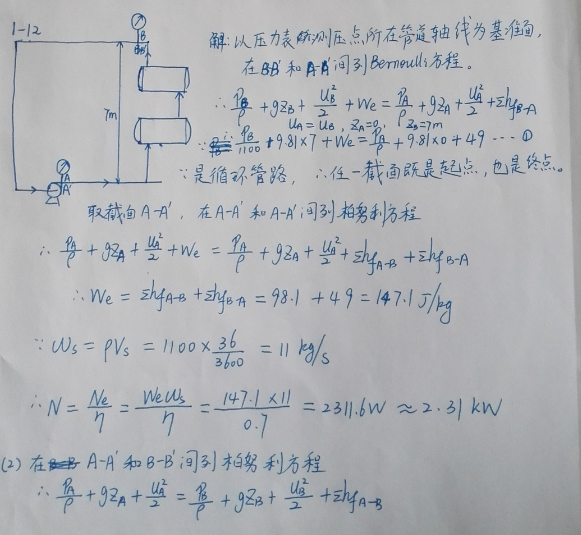 1-12
B
BB'
7m
A
A'
解:以压力表所测压点所在管道轴线为基准面,
在BB'和A-A'间列Bernoulli方程。
∴ P_B/ρ + gZ_B + u_B²/2 + We = P_A/ρ + gZ_A + u_A²/2 + Σh_fB-A
u_A = u_B, Z_A=0, Z_B=7m
∴ P_B/1100 + 9.81×7 + We = P_A/ρ + 9.81×0 + 49 ---- ①
∵是循环管路, ∴任一截面既是起点,也是终点。
取截面A-A', 在A-A'和A-A'间列柏努利方程
∴ P_A/ρ + gZ_A + u_A²/2 + We = P_A/ρ + gZ_A + u_A²/2 + Σh_fA-B + Σh_fB-A
∴ We = Σh_fA-B + Σh_fB-A = 98.1 + 49 = 147.1 J/kg
∵ Ws = ρVs = 1100 × 36/3600 = 11 kg/s
∴ N = Ne/η = WeWs/η = 147.1×11/0.7 = 2311.6W ≈ 2.31 kW
(2) 在 A-A'和B-B'间列柏努利方程
∴ P_A/ρ + gZ_A + u_A²/2 = P_B/ρ + gZ_B + u_B²/2 + Σh_fA-B